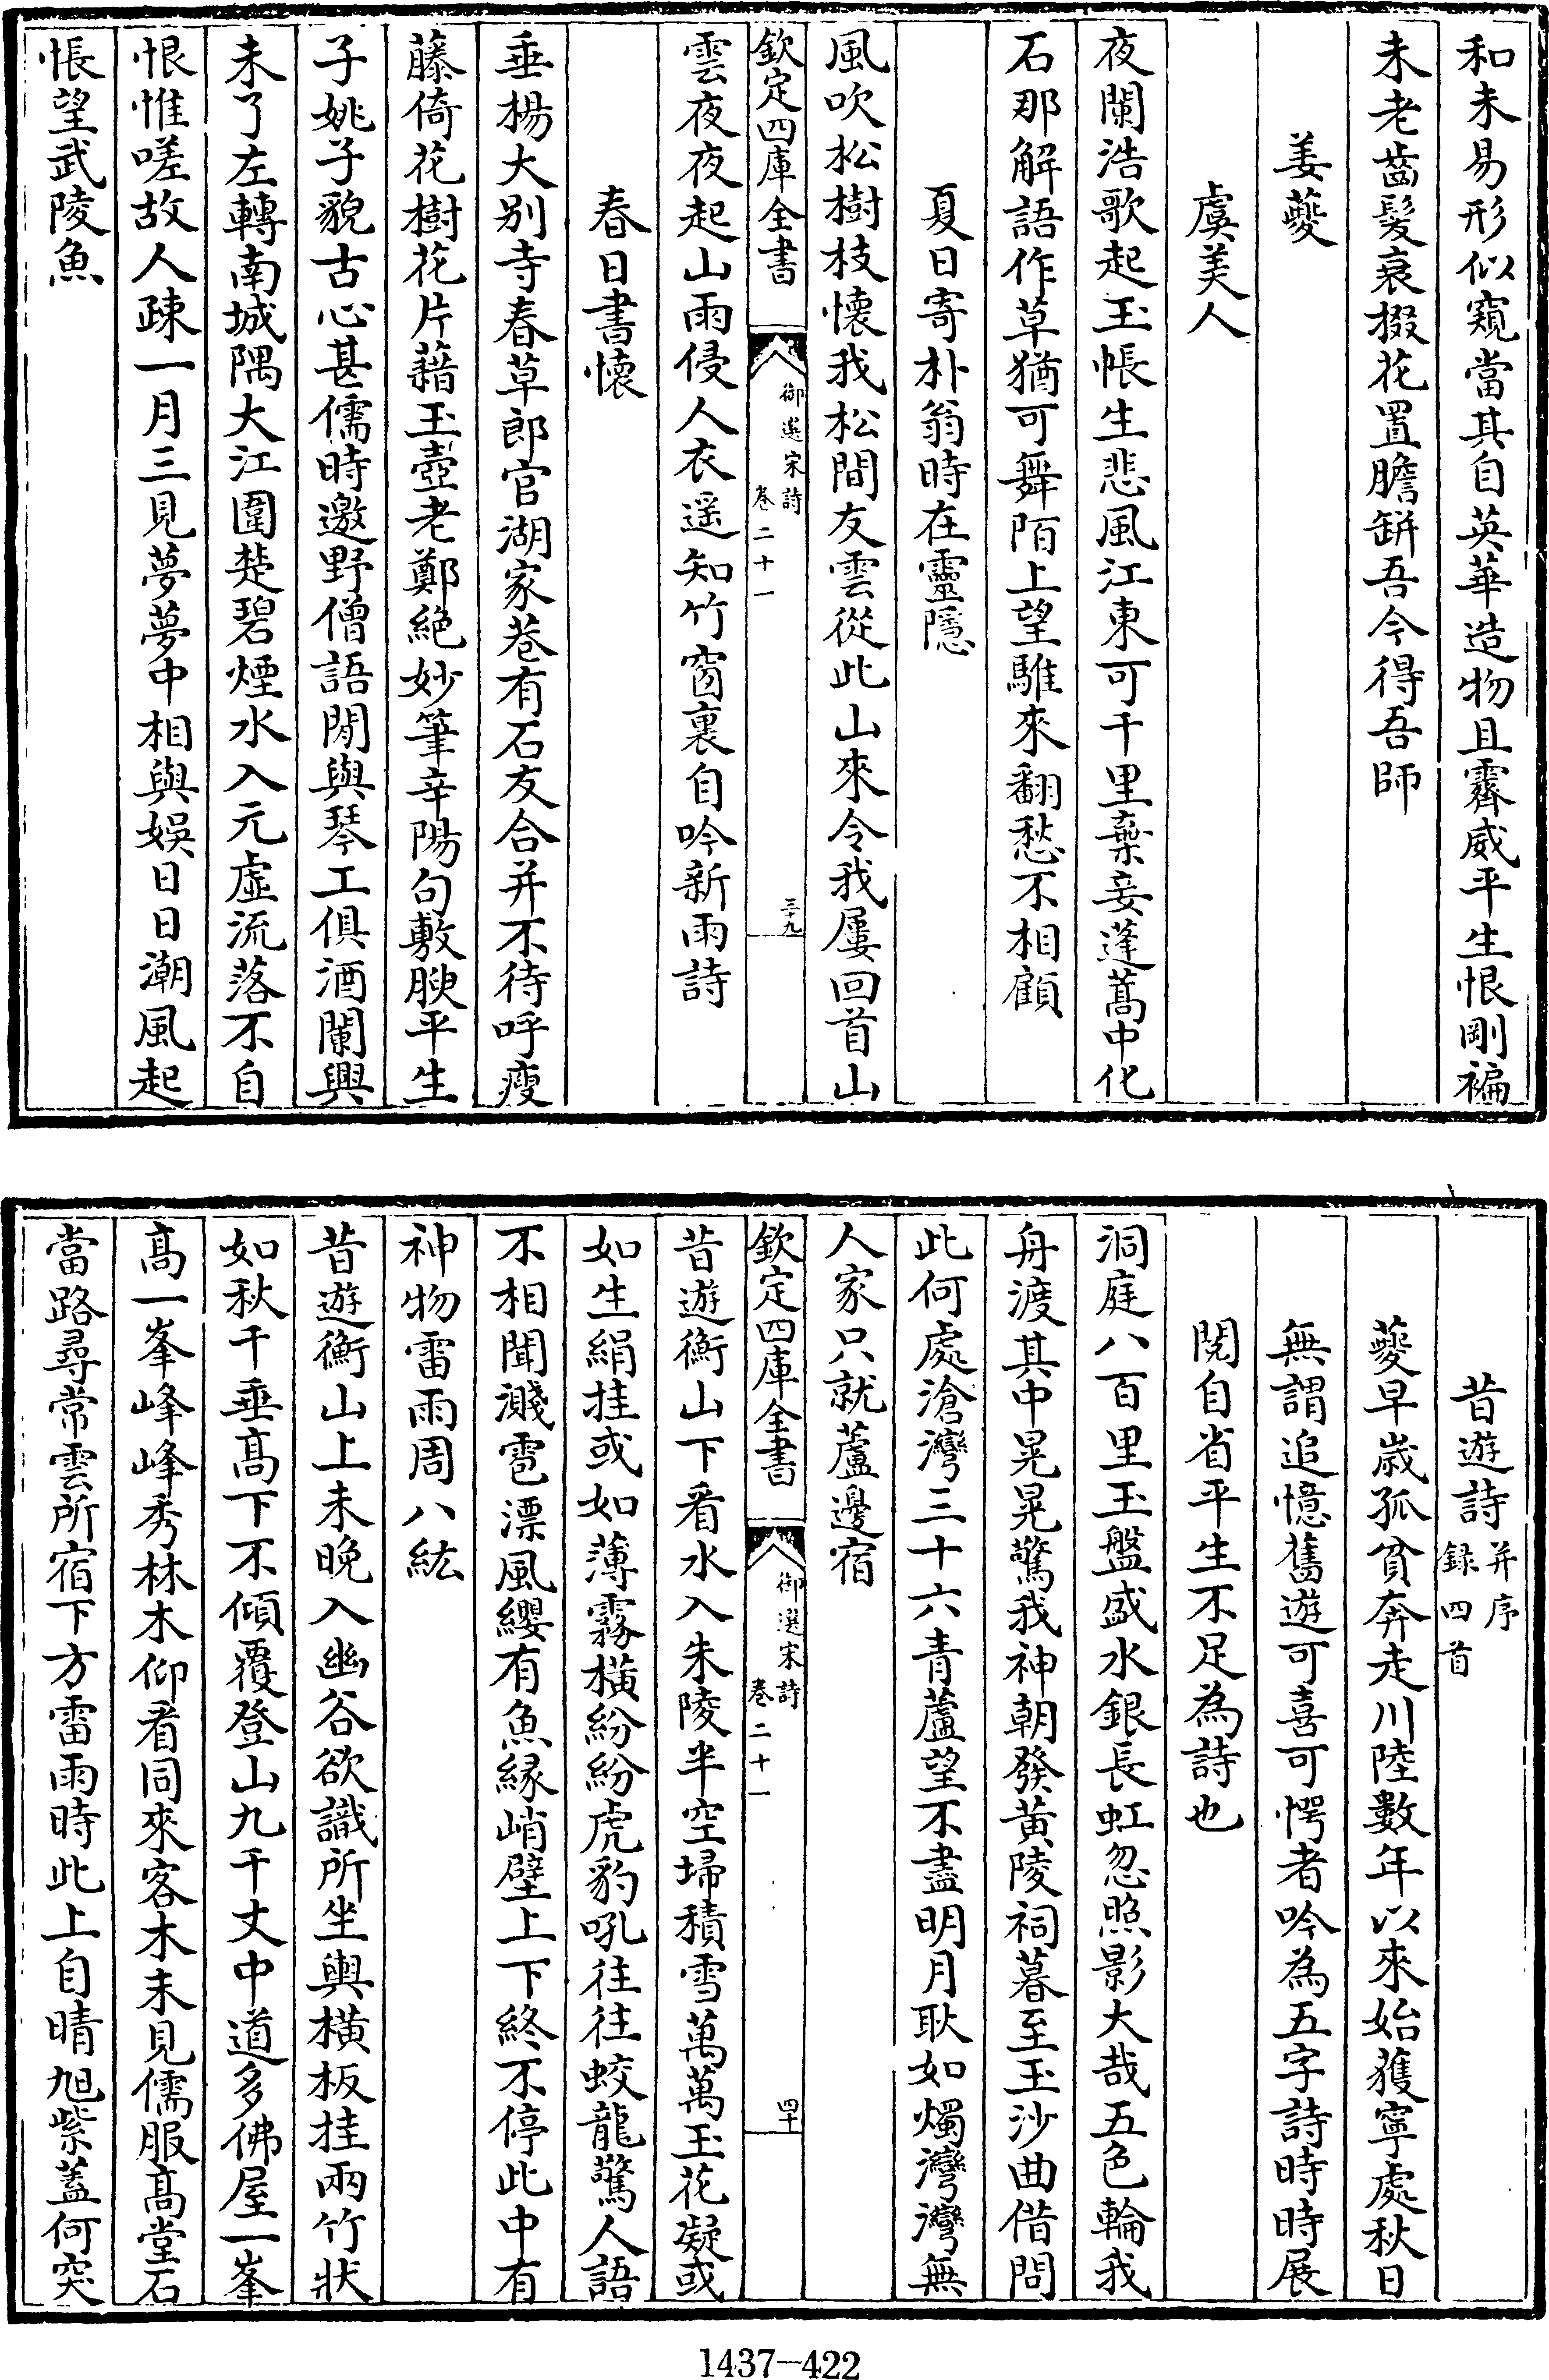 和未易形似窺當其自英華造物且霽威平生恨剛褊
未老齒髮衰掇花置膽缾吾今得吾師
姜夔
虞美人
夜闌浩歌起玉帳生悲風江東可千里棄妾蓬蒿中化
石那解語作草猶可舞陌上望騅來翻愁不相顧
夏日寄朴翁時在靈隱
風吹松樹枝懷我松間友雲從此山來令我屢回首山
欽定四庫全書
御選宋詩
卷二十一
三十九
雲夜夜起山雨侵人衣遥知竹窗裏自吟新雨詩
春日書懷
垂楊大别寺春草郎官湖家巷有石友合并不待呼瘦
藤倚花樹花片藉玉壺老鄭絶妙筆辛陽句敷腴平生
子姚子貌古心甚儒時邀野僧語閒與琴工俱酒闌興
未了左轉南城隅大江圍楚碧煙水入元虚流落不自
恨惟嗟故人疎一月三見夢夢中相與娱日日潮風起
悵望武陵魚
昔遊詩
并序
録四首
夔早歲孤貧奔走川陸數年以來始獲寧處秋日
無謂追憶舊遊可喜可愕者吟為五字詩時時展
閲自省平生不足為詩也
洞庭八百里玉盤盛水銀長虹忽照影大哉五色輪我
舟渡其中晃晃驚我神朝發黄陵祠暮至玉沙曲借問
此何處滄灣三十六青蘆望不盡明月耿如燭灣灣無
人家只就蘆邊宿
欽定四庫全書
御選宋詩
卷二十一
四十
昔遊衡山下看水入朱陵半空埽積雪萬萬玉花凝或
如生絹挂或如薄霧橫紛紛虎豹吼往往蛟龍驚人語
不相聞濺雹漂風纓有魚緣峭壁上下終不停此中有
神物雷雨周八紘
昔遊衡山上未晚入幽谷欲識所坐輿橫板挂兩竹狀
如秋千垂髙下不傾覆登山九千丈中道多佛屋一峯
髙一峯峰峰秀林木仰看同來客木末見儒服髙堂石
當路尋常雲所宿下方雷雨時此上自晴旭紫蓋何突
1437-422